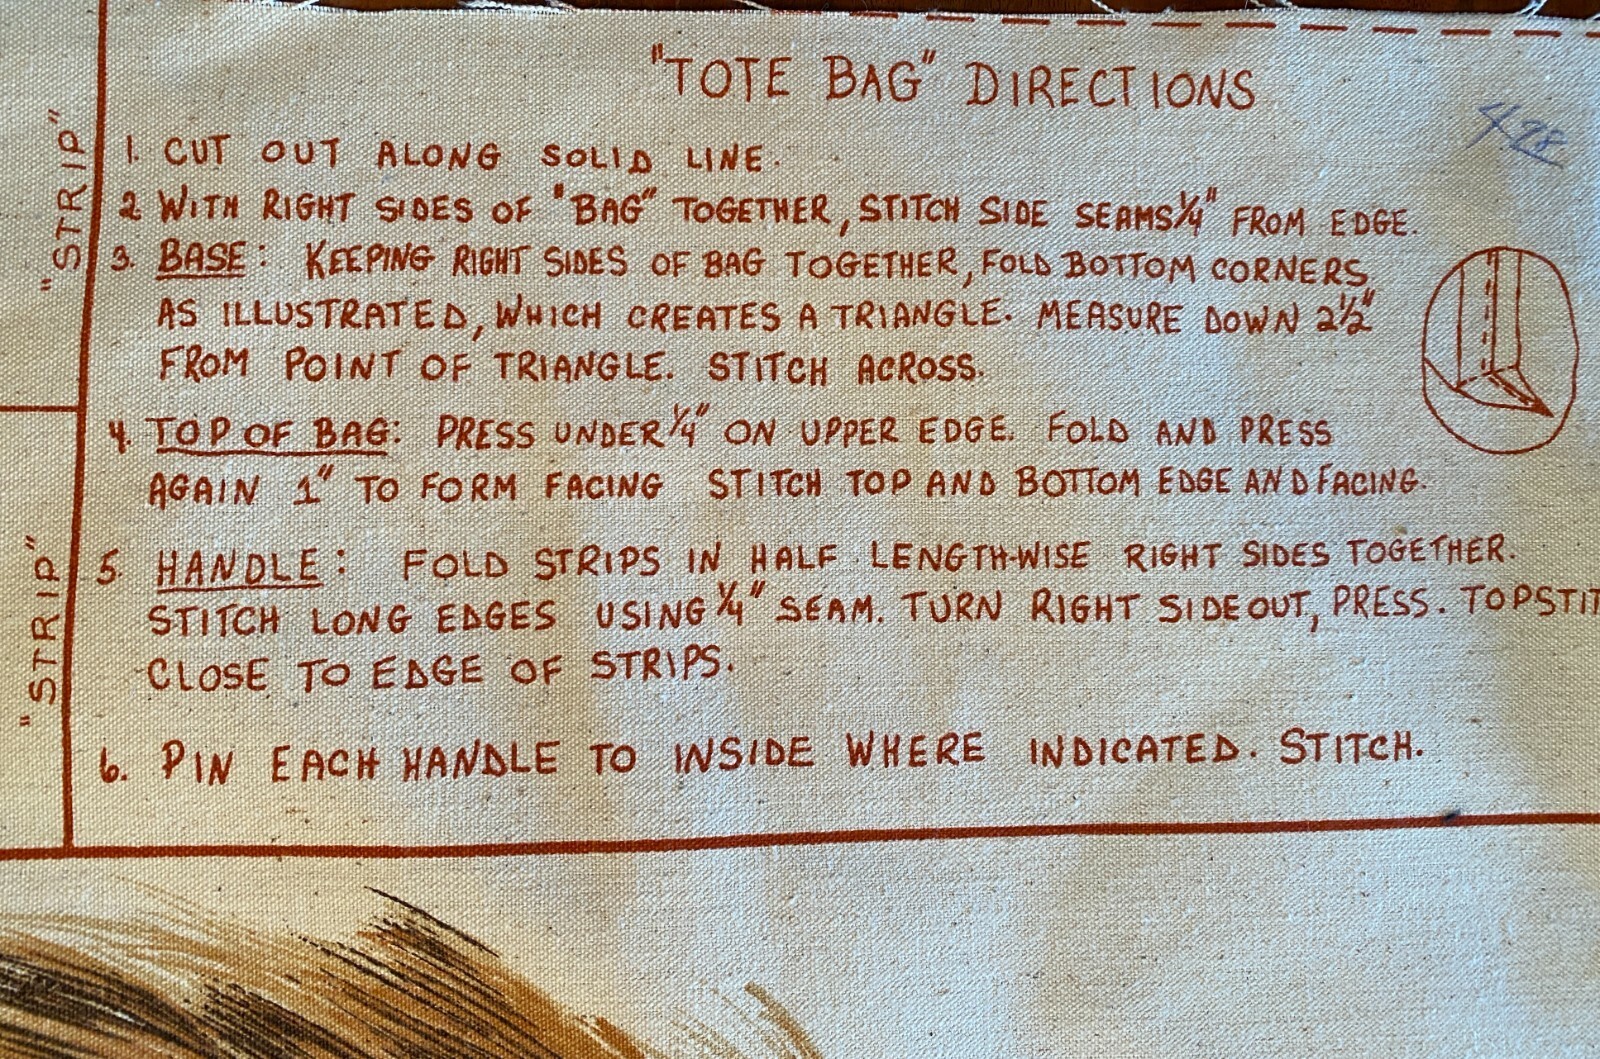 "TOTE BAG" DIRECTIONS
1. CUT OUT ALONG SOLID LINE.
2 WITH RIGHT SIDES OF "BAG" TOGETHER, STITCH SIDE SEAMS ¼" FROM EDGE.
3. BASE: KEEPING RIGHT SIDES OF BAG TOGETHER, FOLD BOTTOM CORNERS
AS ILLUSTRATED, WHICH CREATES A TRIANGLE. MEASURE DOWN 2½"
FROM POINT OF TRIANGLE. STITCH ACROSS.
4. TOP OF BAG: PRESS UNDER ¼" ON UPPER EDGE. FOLD AND PRESS
AGAIN 1" TO FORM FACING STITCH TOP AND BOTTOM EDGE AND FACING.
5. HANDLE: FOLD STRIPS IN HALF LENGTH-WISE RIGHT SIDES TOGETHER.
STITCH LONG EDGES USING ¼" SEAM. TURN RIGHT SIDE OUT, PRESS. TOPSTIT
CLOSE TO EDGE OF STRIPS.
6. PIN EACH HANDLE TO INSIDE WHERE INDICATED. STITCH.
"STRIP"
"STRIP"